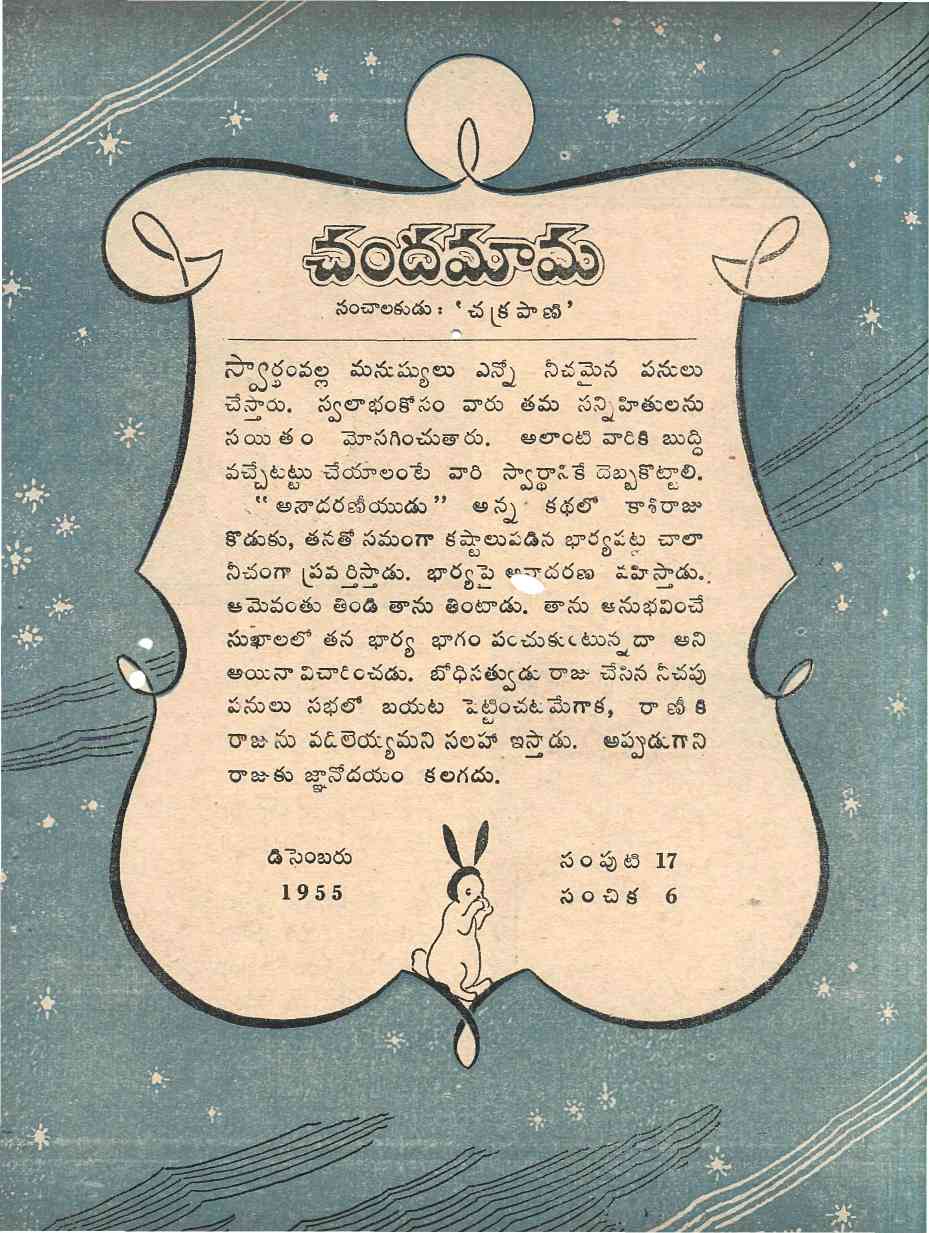 చందమామ
సంచాలకుడు : ‘చక్రపాణి’
స్వార్థంవల్ల మనుష్యులు ఎన్నో నీచమైన పనులు
చేస్తారు. స్వలాభంకోసం వారు తమ సన్నిహితులను
సయితం మోసగించుతారు. అలాంటి వారికి బుద్ధి
వచ్చేటట్టు చేయాలంటే వారి స్వార్థానికే దెబ్బకొట్టాలి.
“అనాదరణీయుడు” అన్న కథలో కాశీరాజు
కొడుకు, తనతో సమంగా కష్టాలుపడిన భార్యపట్ల చాలా
నీచంగా ప్రవర్తిస్తాడు. భార్యపై అనాదరణ వహిస్తాడు.
ఆమెవంతు తిండి తాను తింటాడు. తాను అనుభవించే
సుఖాలలో తన భార్య భాగం పంచుకుంటున్నదా అని
అయినా విచారించడు. బోధిసత్వుడు రాజు చేసిన నీచపు
పనులు సభలో బయట పెట్టించటమేగాక, రాణీకి
రాజును వదిలెయ్యమని సలహా ఇస్తాడు. అప్పుడుగాని
రాజుకు జ్ఞానోదయం కలగదు.
డిసెంబరు
1955
సంపుటి 17
సంచిక 6